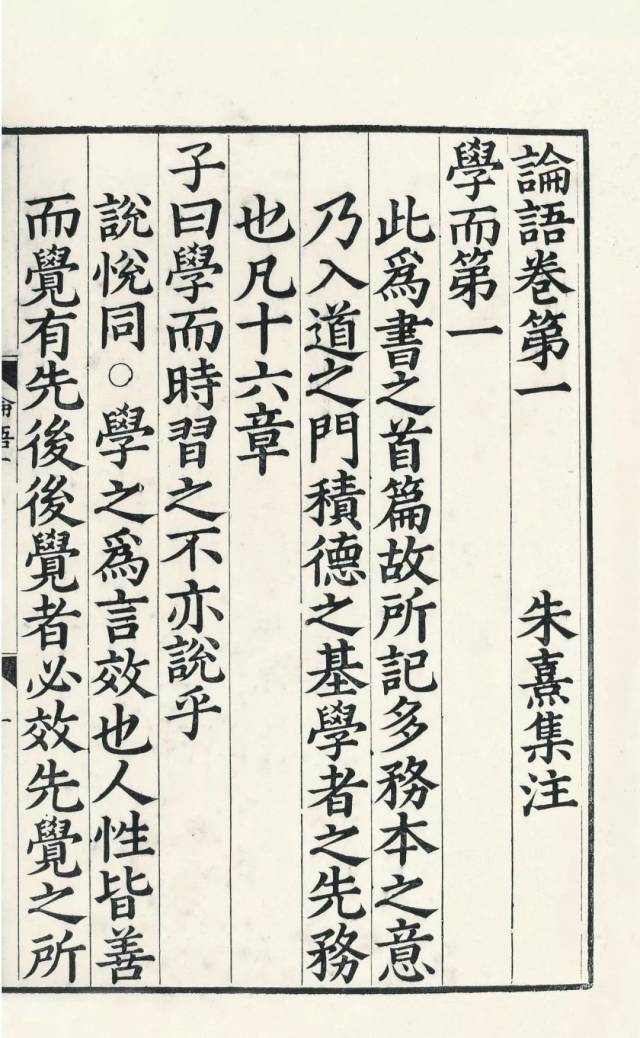 論語卷第一 朱熹集注
學而第一
此爲書之首篇故所記多務本之意
乃入道之門積德之基學者之先務
也凡十六章
子曰學而時習之不亦說乎
說悅同○學之爲言效也人性皆善
而覺有先後後覺者必效先覺之所
論語一
一